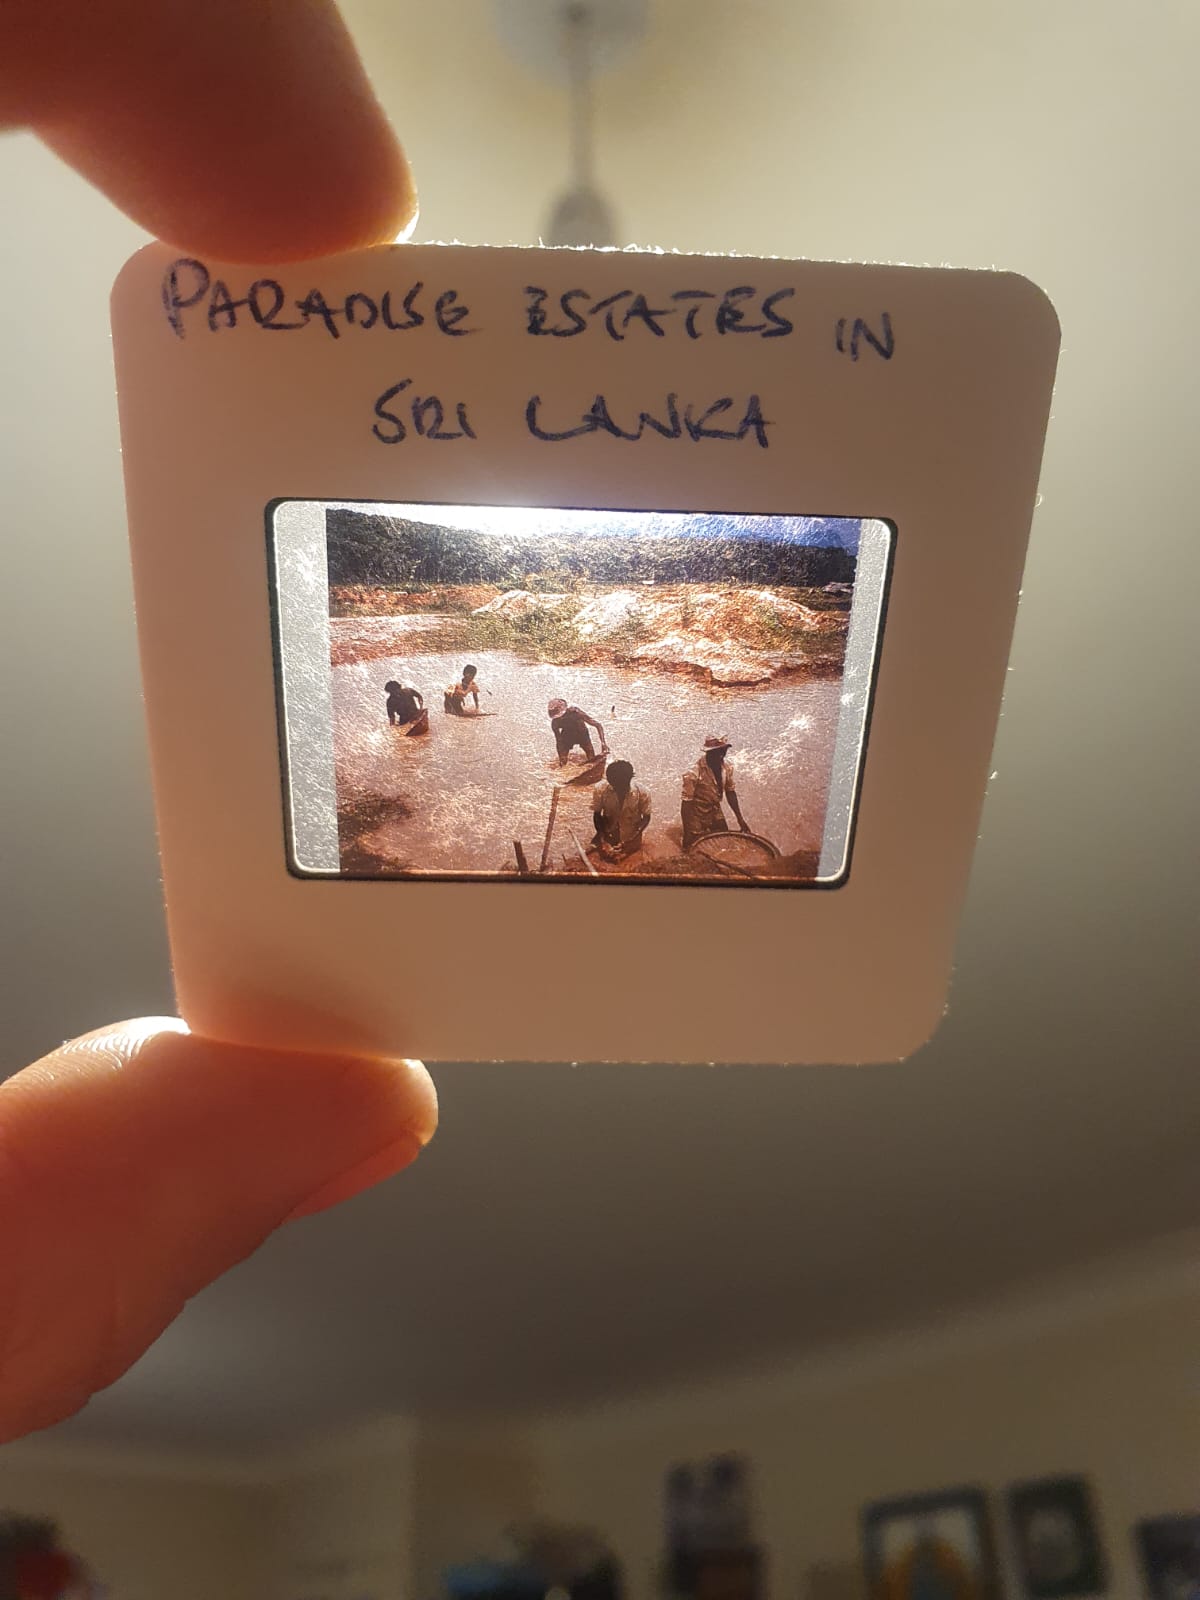 PARADISE ESTATES IN
SRI LANKA